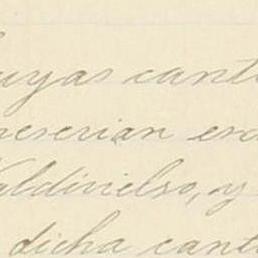 cuyas canti
reserian en
Valdivielso, y
dicha canti